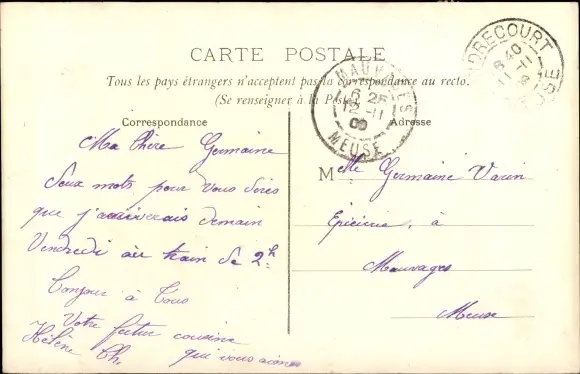 CARTE POSTALE
Tous les pays étrangers n'acceptent pas la correspondance au recto.
(Se renseigner à la Poste)
Correspondance
Ma Chère Germaine
deux mots pour vous dires
que j'arriverais demain
Vendredi au train de 2h
Bonjour à Tous
Votre futur cousine
qui vous aime
Hélène Ch.
Adresse
Mlle Germaine Varin
Epicerie, à
Mauvages
Meuse
MAUVAGES
6 25
12 -11
09
MEUSE
DRECOURT
6 40
11 -11